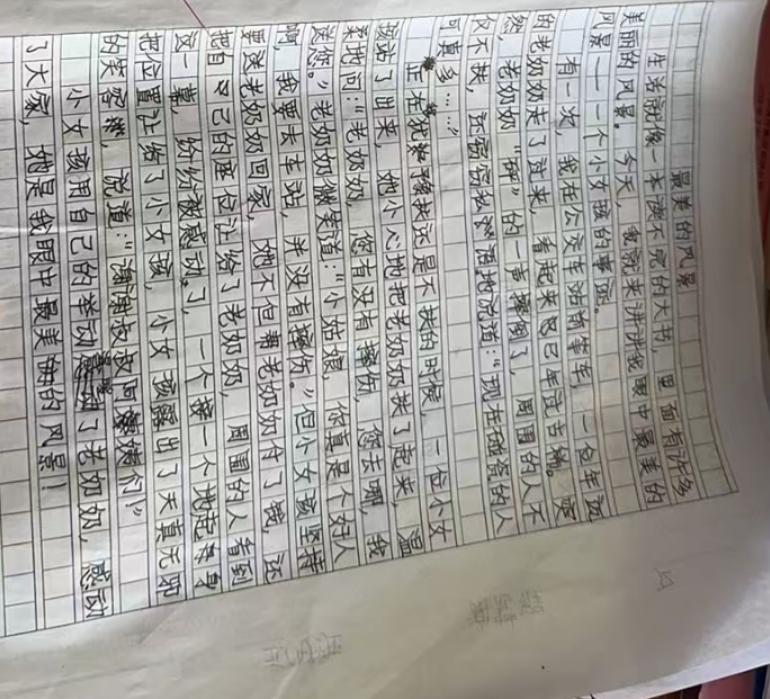 最美的风景
生活就像一本读不完的大书，里面有许多
美丽的风景。今天，我就来讲讲我眼中最美的
风景——一个小女孩的事迹。
有一次，我在公交车站前等车，一位年迈
的老奶奶走了过来，看起来已年过古稀。突
然，老奶奶“砰”的一声摔倒了，周围的人不
仅不扶，还窃窃私语地说道：“现在碰瓷的人
可真多……”
正在我犹豫扶还是不扶的时候，一位小女
孩站了出来，她小心地把老奶奶扶了起来，温
柔地问：“老奶奶，您有没有摔伤，您去哪，我
送您。”老奶奶微笑道：“小姑娘，你真是个好人
啊，我要去车站，并没有摔伤。”但小女孩坚持
要送老奶奶回家，她不但帮老奶奶付了钱，还
把自己的座位让给了老奶奶，周围的人看到
这一幕，纷纷被感动了，一个接一个地起身
把位置让给了小女孩，小女孩露出了天真无邪
的笑容，说道：“谢谢叔叔阿姨们”
小女孩用自己的举动感动了老奶奶，感动
了大家，她是我眼中最美的风景！